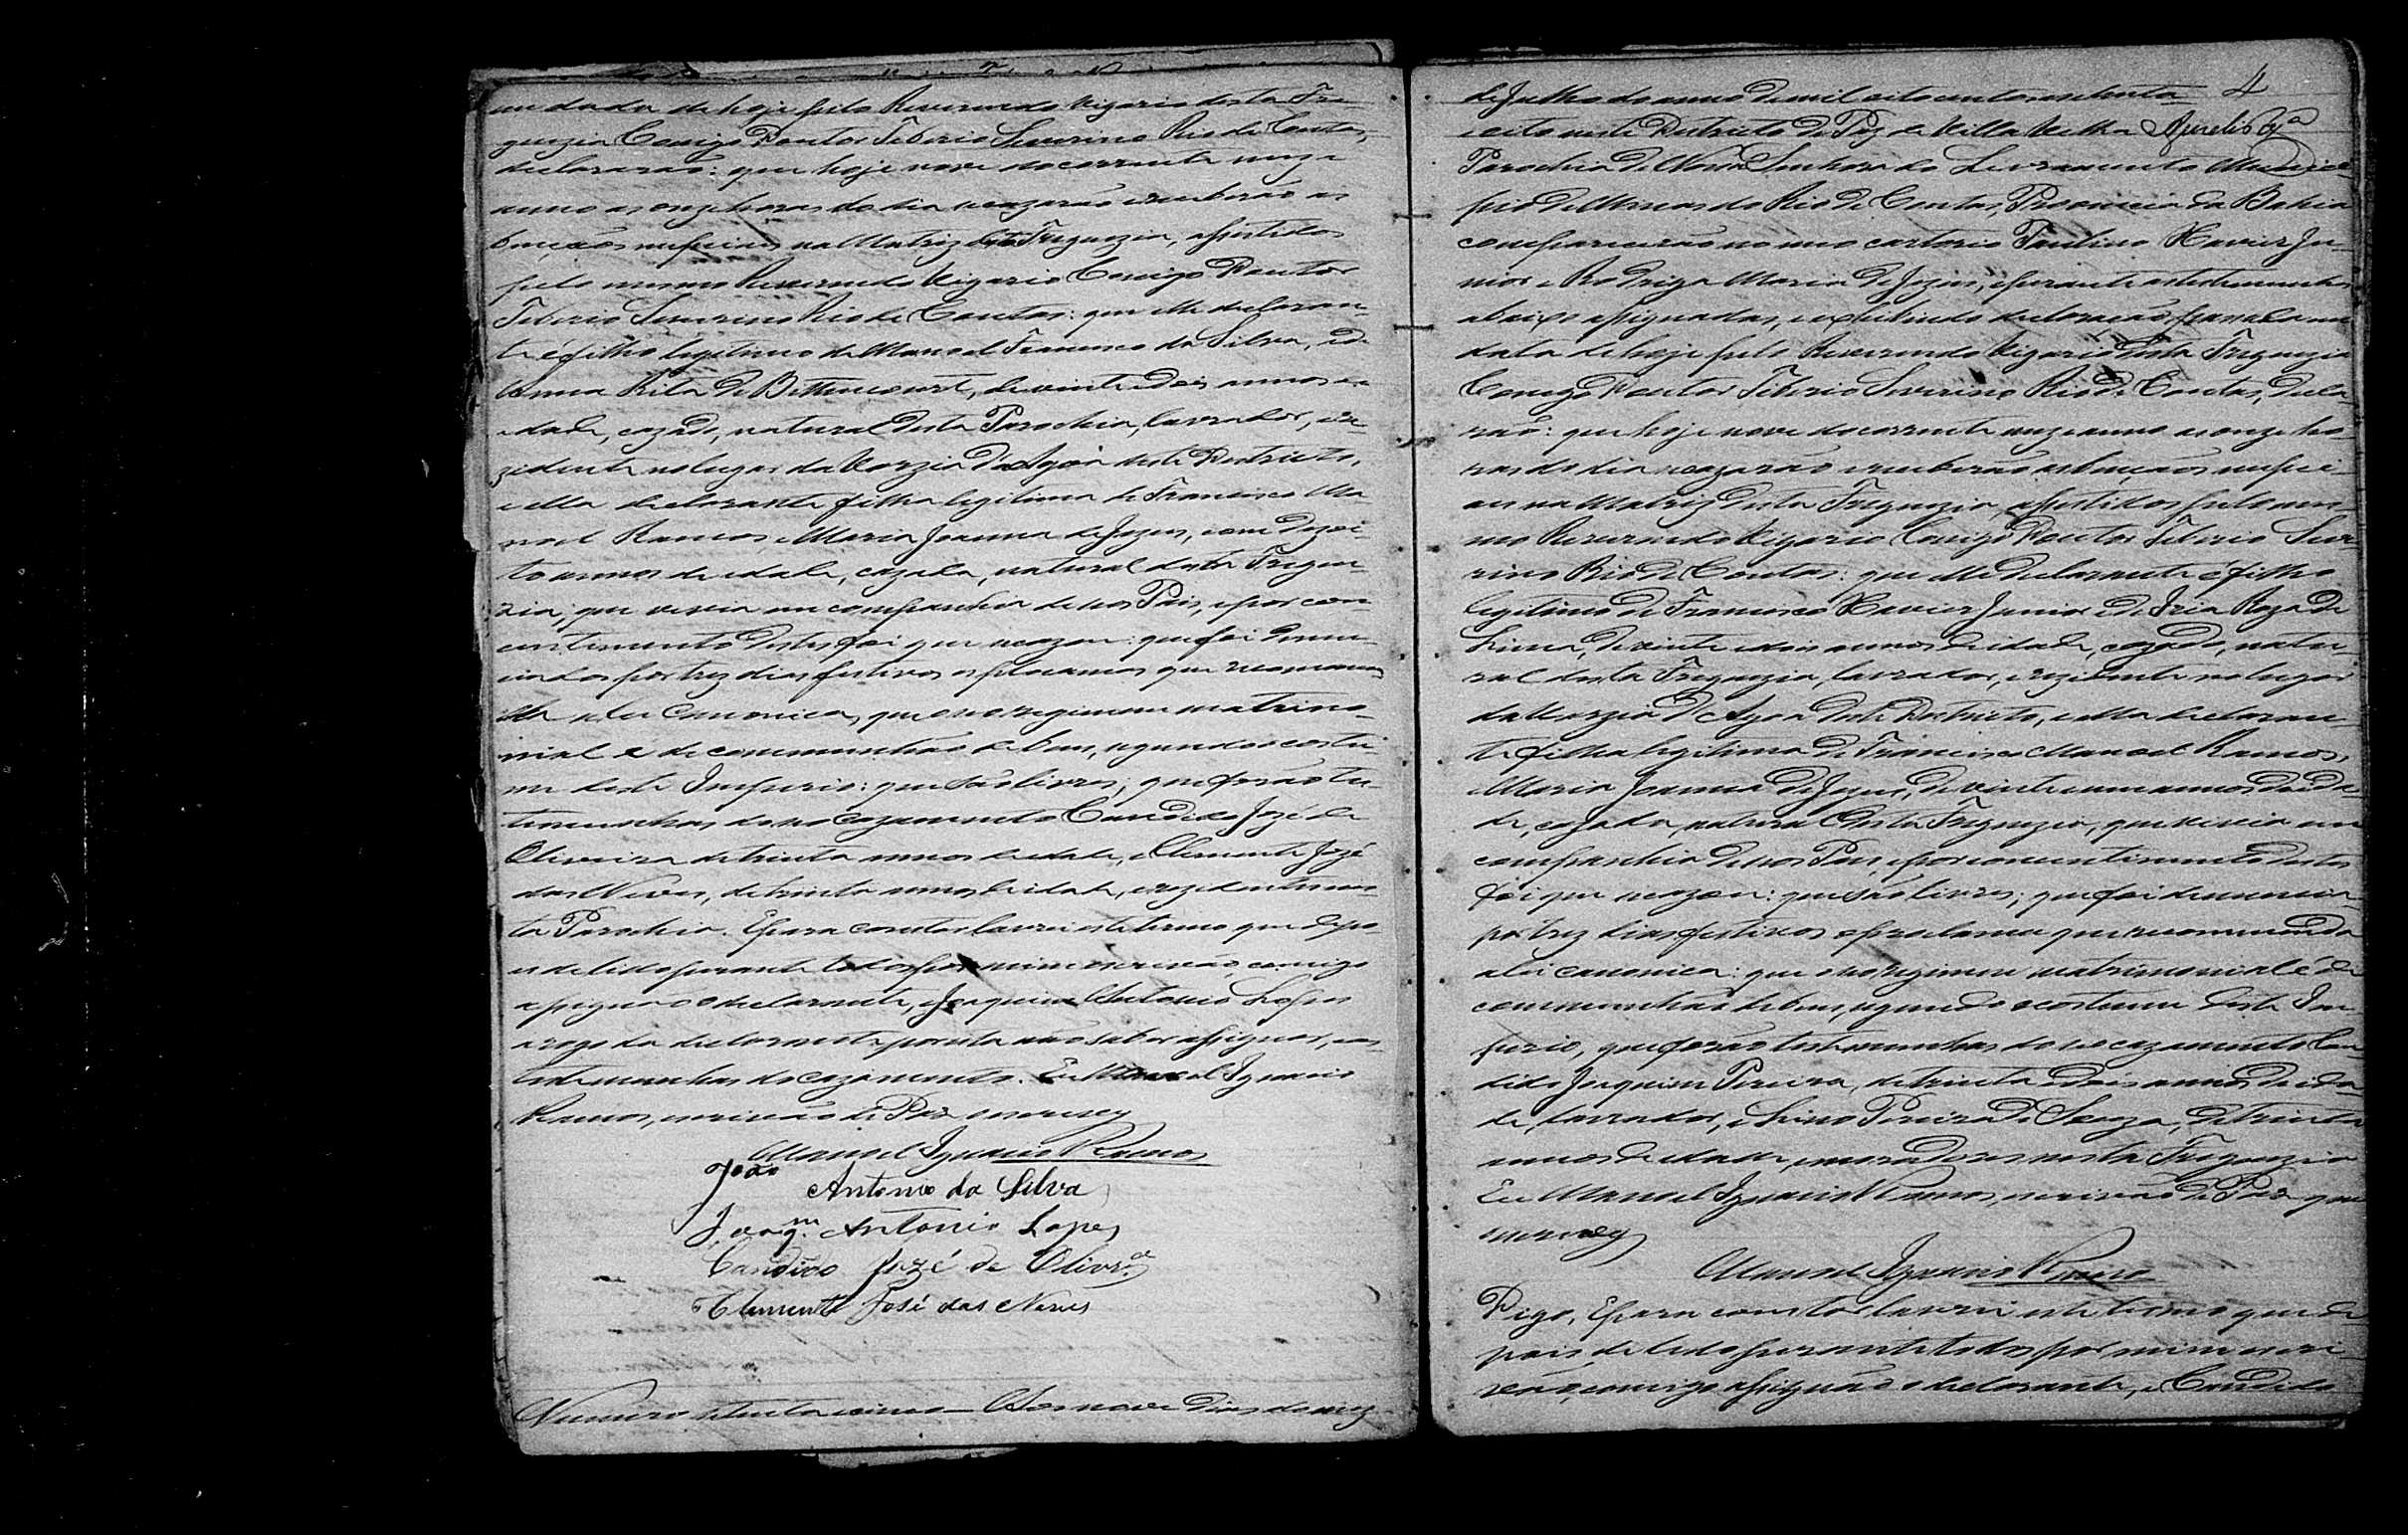 em dacta de hoje pelo Reverendo Vigario desta Fre-
guezia Conego Doutor Tiberio Severino Rio de Contas,
declararão: que hoje nove do corrente mez e
anno as onze horas do dia se cazarão e receberão as
bençãos nupciaes na Matriz desta Freguezia, assistidos
pelo mesmo Reverendo Vigario Conego Doutor
Tiberio Severino Rio de Contas: que elle declaran-
te é filho legitimo de Manoel Francisco da Silva, e de
Rita de Bittencourt, de vinte e dois annos de
idade, cazado, natural desta Parochia, lavrador, e re-
zidente no lugar da Varzia d'Agoa deste Destricto,
e ella declarante filha legitima de Francisco Ma-
noel Ramos, e Maria Joanna de Jezus, com dezoi-
to annos de idade, cazada, natural desta Fregue-
zia, que vivia em companhia de seos Pais, e por con-
sentimento destes foi que se cazou: que foi denun-
ciados por trez dias festivos os proclamas que recomen-
da a Lei Canonica, que o seo regimem matrimo-
nial é de communhão de bens, segundo o costu-
me deste Imperio: que são livres; que forão tes-
temunhas do seo cazamento Candido Jozé de
Oliveira de trinta annos de idade, e Clemente Jozé
das Neves, de trinta annos de idade, e rezidentes nes-
ta Parochia. E para constar lavrei este termo que depo-
is de lido perante todos por mim escrivão, comigo
assignão o declarante, e Joaquim Antonio Lopes
a rogo da declarante por esta não saber assignar, e as
testemunhas do cazamento. Eu Manoel Ignacio
Ramos, escrivão de Paz o escrevy
Manoel Ignacio Ramos
João Antonio da Silva
Joaqm. Antonio Lopes
Candido Jozé de Olivra.
Clemente José das Neves
Numero setenta e cinco — Aos nove dias do mez
4
de Julho do anno de mil oito centos e setenta
e oito neste Destricto de Paz da Villa Velha
Parochia de Nossa Senhora do Livramento Munici-
pio de Minas do Rio de Contas, Provincia da Bahia
comparecerão no meo cartorio Paulino Xavier Ju-
nior e Rodriga Maria de Jezus, e perante as testemunhas
abaixo assignadas, e exibindo declaração passada em
data de hoje pelo Reverendo Vigario desta Freguezia
Conego Doutor Tiberio Severino Rio de Contas, decla-
rão: que hoje nove do corrente mez e anno as onze ho-
ras do dia se cazarão e receberão as bençãos nupci-
aes na Matriz desta Freguezia, assistidos pelo mes-
mo Reverendo Vigario Conego Doutor Tiberio Seve-
rino Rio de Contas: que elle declarante é filho
legitimo de Francisco Xavier Junior e de Iria Roza de
Lima, de vinte e dois annos de idade, cazado, natu-
ral desta Freguezia, lavrador, e rezidente no lugar
da Varzia d'Agoa deste Destricto, e ella declaran-
te filha legitima de Francisco Manoel Ramos,
e Maria Joanna de Jezus, de vinte e um annos de ida-
de, cazada, natural desta Freguezia, que vivia em
companhia de seos Pais, e por consentimento destes
foi que se cazou: que são livres; que foi denuncia-
por trez dias festivos os proclamas que recommenda
a Lei canonica: que o seo regimem matrimonial é de
communhão de bens, segundo o costume deste Im-
perio, que forão testemunhas do seo cazamento Can-
dido Joaquim Pereira, de trinta e dois annos de ida-
de, lavrador, e Lino Pereira de Souza, de trinta
annos de idade, e moradores nesta Freguezia
Eu Manoel Ignacio Ramos, escrivão de Paz que
escrevy
Manoel Ignacio Ramos
Digo, E para constar lavrei este termo que de-
pois de lido perante todos por mim escri-
vão, comigo assignão o declarante, e Candido